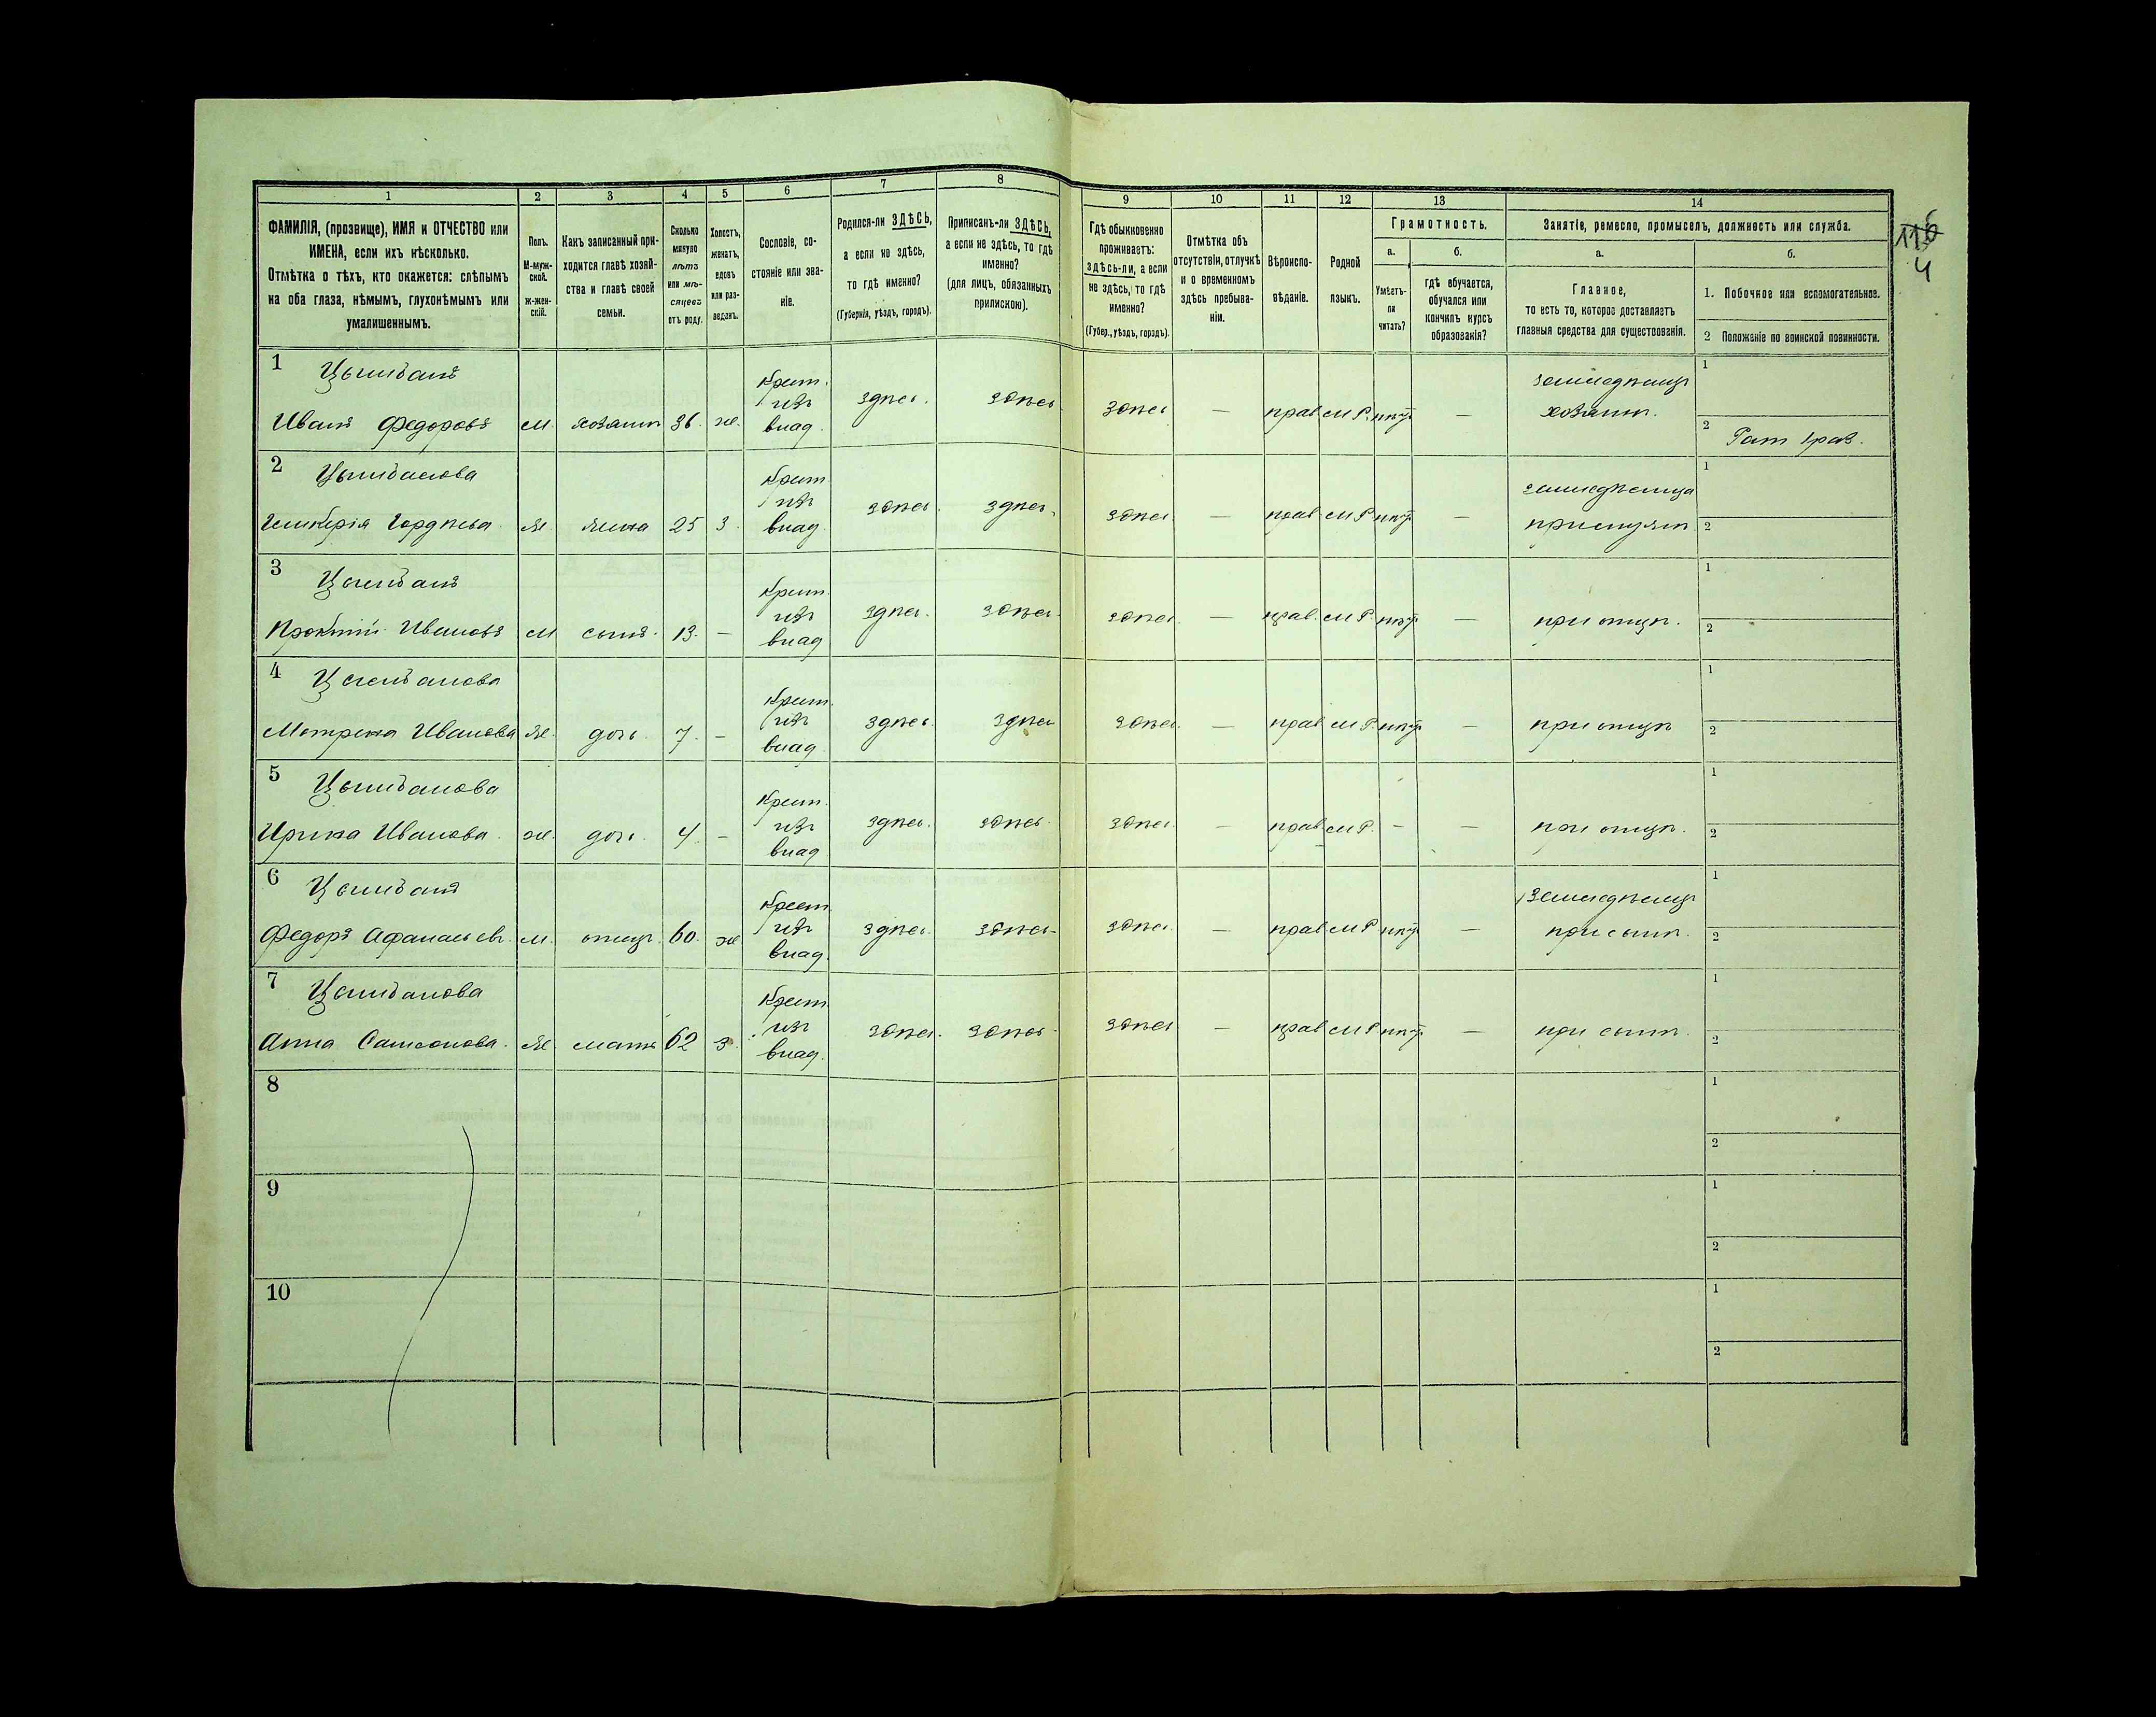 1 2 3 4 5 6 7 8 9 10 11 12 13 14
ФАМИЛІЯ, (прозвище), ИМЯ и ОТЧЕСТВО или
ИМЕНА, если ихъ нѣсколько.
Отмѣтка о тѣхъ, кто окажется: слѣпымъ
на оба глаза, нѣмымъ, глухонѣмымъ или
умалишеннымъ.
Полъ.
М-муж-
ской.
Ж-жен-
скій.
Какъ записанный при-
ходится главѣ хозяй-
ства и главѣ своей
семьи.
Сколько
минуло
лѣтъ
или мѣ-
сяцевъ
отъ роду.
Холостъ,
женатъ,
вдовъ
или раз-
веденъ.
Сословіе, со-
стояніе или зва-
ніе.
Родился-ли ЗДѢСЬ,
а если не здѣсь,
то гдѣ именно?
(Губернія, уѣздъ, городъ).
Приписанъ-ли ЗДѢСЬ,
а если не здѣсь, то гдѣ
именно?
(для лицъ, обязанныхъ
припискою).
Гдѣ обыкновенно
проживаетъ:
здѣсь-ли, а если
не здѣсь, то гдѣ
именно?
(Губер., уѣздъ, городъ).
Отмѣтка объ
отсутствіи, отлучкѣ
и о временномъ
здѣсь пребыва-
ніи.
Вѣроиспо-
вѣданіе.
Родной
языкъ.
Грамотность.
а.
Умѣетъ-
ли
читать?
б.
гдѣ обучается,
обучался или
кончилъ курсъ
образованія?
Занятіе, ремесло, промыселъ, должность или служба.
а.
Главное,
то есть то, которое доставляетъ
главныя средства для существованія.
б.
1. Побочное или вспомогательное.
2 Положеніе по воинской повинности.
4
1 Цымбалъ
Крест.
изъ
влад.
земледѣлецъ
1
Иванъ Федоровъ м. хозяинъ 36. ж. здѣсь. здѣсь здѣсь — прав. м.р. нѣтъ — хозяинъ.
2 Рат. 1 раз.
2 Цымбалова
Крест.
изъ
влад.
земледѣлица
1
Гордѣева ж. жена 25 з. здѣсь. здѣсь. здѣсь — прав. м.р. нѣтъ — при мужѣ
2
3 Цымбалъ
Крест.
изъ
влад.
1
Ивановъ м сынъ. 13. — здѣсь. здѣсь. здѣсь. — прав. м.р. нѣтъ — при отцѣ.
2
4 Цымбалова
Крест.
изъ
влад.
1
Мотрена Иванова ж. дочь. 7. — здѣсь. здѣсь здѣсь. — прав. м.р. нѣтъ — при отцѣ
2
5 Цымбалова
Крест.
изъ
влад.
1
Ирина Иванова. ж. дочь. 4. — здѣсь. здѣсь. здѣсь. — прав. м.р. — — при отцѣ.
2
6 Цымбалъ
Крест.
изъ
влад.
земледѣлецъ
1
Федоръ Афанасьевъ. м. отецъ. 60. ж здѣсь. здѣсь. здѣсь. — прав. м.р. нѣтъ — при сынѣ.
2
7 Цымбалова
Крест.
изъ
влад.
1
Анна Самсонова. ж. мать 62 з. здѣсь. здѣсь. здѣсь — прав. м.р. нѣтъ — при сынѣ.
2
8 1
2
9 1
2
10 1
2